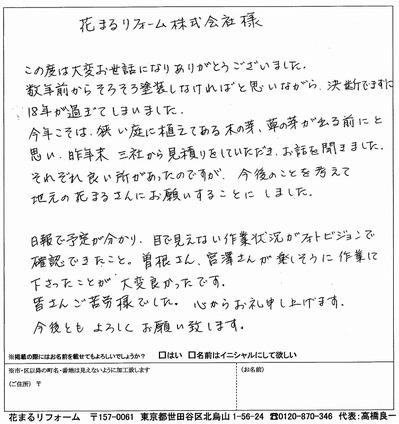 花まるリフォーム株式会社 様
この度は大変お世話になりありがとうございました。
数年前からそろそろ塗装しなければと思いながら、決断できずに
18年が過ぎてしまいました。
今年こそは、狭い庭に植えてある木の芽、草の芽が出る前にと
思い、昨年末 三社から見積りをしていただき、お話を聞きました。
それぞれ良い所があったのですが、今後のことを考えて
地元の花まるさんにお願いすることに しました。
日報で予定が分かり、目で見えない作業状況がフォトビジョンで
確認できたこと。曽根さん、宮澤さんが楽しそうに作業して
下さったことが 大変良かったです。
皆さんご苦労様でした。心からお礼申し上げます。
今後とも よろしく お願い致します。
※掲載の際にはお名前を載せてもよろしいでしょうか? □はい □名前はイニシャルにして欲しい
※市・区以降の町名・番地は見えないように加工致します
(ご住所) 〒
(お名前)
花まるリフォーム 〒157-0061 東京都世田谷区北烏山1-56-24 ☎0120-870-346 代表:高橋良一